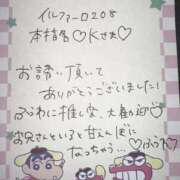 イルファーロ208
本指名♡Kさま♡
お誘い頂いて
ありがとうございました!
ふうわに推し変、大歓迎♡
お兄さんといると甘えんぼに
なっちゃう…♡